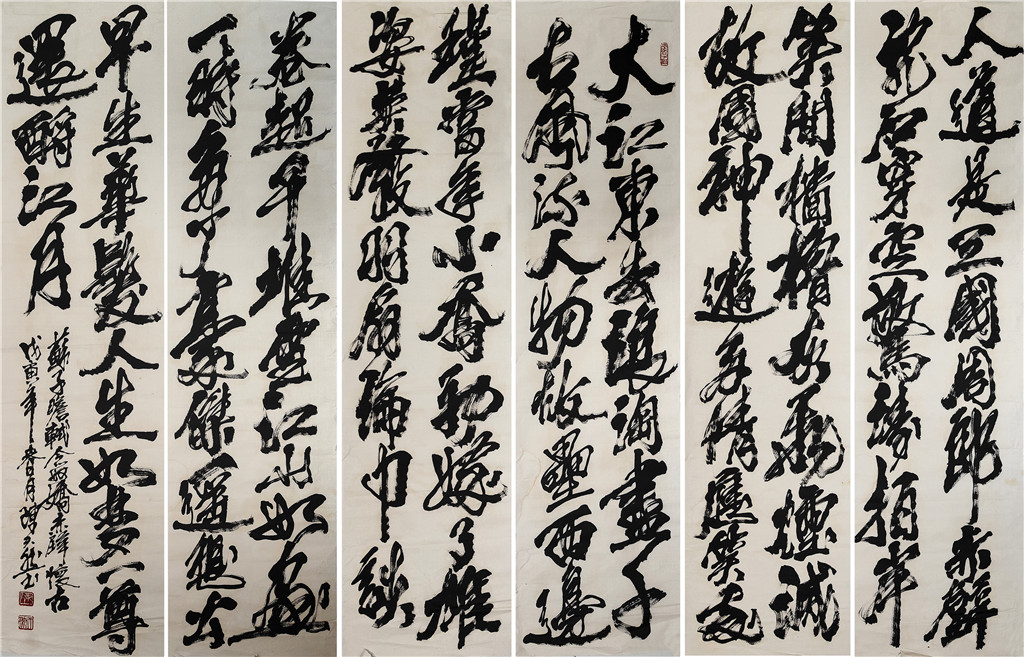 大江東去浪淘盡千
古風流人物故壘西邊
人道是三國周郎赤壁
亂石穿空驚濤拍岸
卷起千堆雪江山如畫
一時多少豪傑遙想公
瑾當年小喬初嫁了雄
姿英發羽扇綸巾談
笑間檣櫓灰飛煙滅
故國神遊多情應笑我
早生華髮人生如夢一尊
還酹江月
蘇子瞻軾念奴嬌赤壁懷古
戊寅年春月